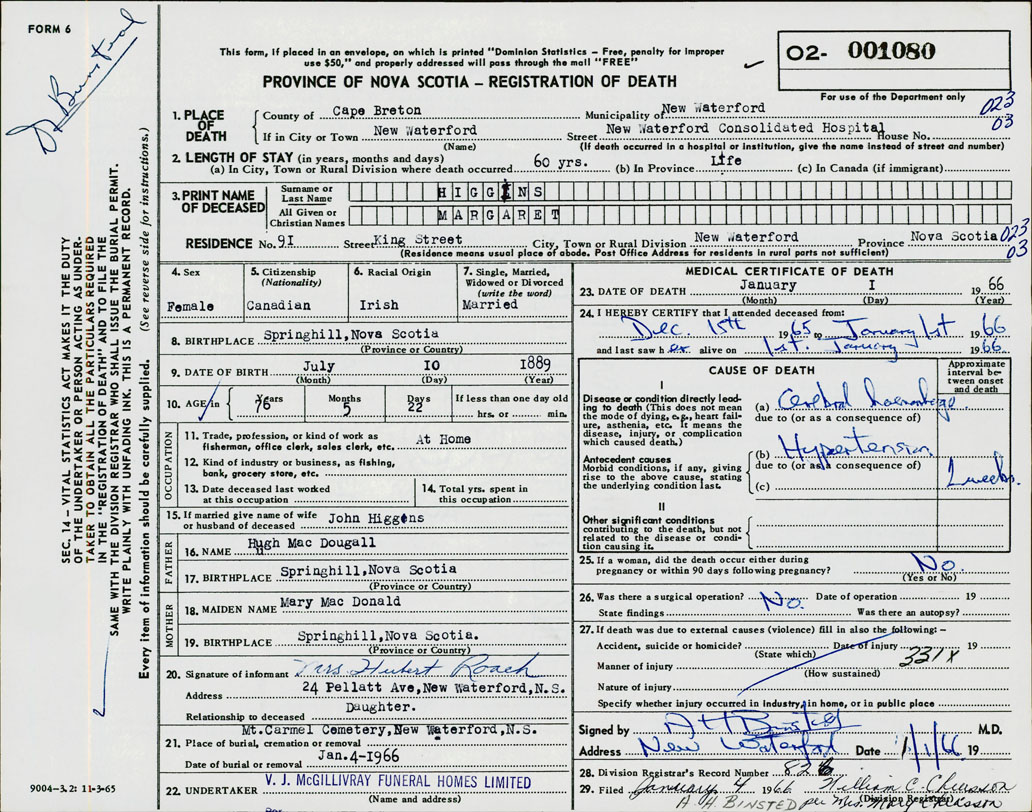 FORM 6
Dr Binsted
This form, if placed in an envelope, on which is printed "Dominion Statistics – Free, penalty for improper
use $50," and properly addressed will pass through the mail "FREE"
PROVINCE OF NOVA SCOTIA – REGISTRATION OF DEATH
02- 001080
For use of the Department only
SEC. 14 – VITAL STATISTICS ACT MAKES IT THE DUTY
OF THE UNDERTAKER OR PERSON ACTING AS UNDER-
TAKER TO OBTAIN ALL THE PARTICULARS REQUIRED
IN THE "REGISTRATION OF DEATH" AND TO FILE THE
SAME WITH THE DIVISION REGISTRAR WHO SHALL ISSUE THE BURIAL PERMIT.
WRITE PLAINLY WITH UNFADING INK. THIS IS A PERMANENT RECORD.
Every item of information should be carefully supplied. (See reverse side for instructions.)
1. PLACE OF DEATH
County of Cape Breton Municipality of New Waterford 023
If in City or Town New Waterford Street New Waterford Consolidated Hospital House No. 03
(Name) (If death occurred in a hospital or institution, give the name instead of street and number)
2. LENGTH OF STAY (in years, months and days)
(a) In City, Town or Rural Division where death occurred 60 yrs. (b) In Province Life (c) In Canada (if immigrant)
3. PRINT NAME OF DECEASED
Surname or Last Name HIGGINS
All Given or Christian Names MARGARET
RESIDENCE No. 9I Street King Street City, Town or Rural Division New Waterford Province Nova Scotia 023
03
(Residence means usual place of abode. Post Office Address for residents in rural parts not sufficient)
4. Sex
Female
5. Citizenship
(Nationality)
Canadian
6. Racial Origin
Irish
7. Single, Married,
Widowed or Divorced
(write the word)
Married
8. BIRTHPLACE Springhill,Nova Scotia
(Province or Country)
9. DATE OF BIRTH July IO 1889
(Month) (Day) (Year)
10. AGE in Years 76 Months 5 Days 22 If less than one day old
hrs. or min.
OCCUPATION
11. Trade, profession, or kind of work as
fisherman, office clerk, sales clerk, etc. At Home
12. Kind of industry or business, as fishing,
bank, grocery store, etc.
13. Date deceased last worked
at this occupation
14. Total yrs. spent in
this occupation
15. If married give name of wife
or husband of deceased John Higgins
FATHER
16. NAME Hugh Mac Dougall
17. BIRTHPLACE Springhill,Nova Scotia
(Province or Country)
MOTHER
18. MAIDEN NAME Mary Mac Donald
19. BIRTHPLACE Springhill,Nova Scotia.
(Province or Country)
20. Signature of informant Mrs. Hubert Roach
Address 24 Pellatt Ave,New Waterford,N.S.
Relationship to deceased Daughter.
Mt.Carmel Cemetery,New Waterford,N.S.
21. Place of burial, cremation or removal
Date of burial or removal Jan.4-1966
22. UNDERTAKER V. J. McGILLIVRAY FUNERAL HOMES LIMITED
(Name and address)
9004–3.2: 11-3-65
MEDICAL CERTIFICATE OF DEATH
23. DATE OF DEATH January I 1966
(Month) (Day) (Year)
24. I HEREBY CERTIFY that I attended deceased from:
Dec. 15th 1965 to January 1st 1966
and last saw her alive on 1st. January 1966
CAUSE OF DEATH
Approximate
interval be-
tween onset
and death
I
Disease or condition directly lead-
ing to death (This does not mean
the mode of dying, e.g., heart fail-
ure, asthenia, etc. It means the
disease, injury, or complication
which caused death.)
(a) Cerebral haemorrhage
due to (or as a consequence of)
Antecedent causes
Morbid conditions, if any, giving
rise to the above cause, stating
the underlying condition last.
(b) Hypertension
due to (or as a consequence of)
(c)
2 weeks.
II
Other significant conditions
contributing to the death, but not
related to the disease or condi-
tion causing it.
25. If a woman, did the death occur either during
pregnancy or within 90 days following pregnancy? No
(Yes or No)
26. Was there a surgical operation? No. Date of operation 19
State findings Was there an autopsy?
27. If death was due to external causes (violence) fill in also the following: –
Accident, suicide or homicide? Date of injury 19
(State which) 331X
Manner of injury
(How sustained)
Nature of injury
Specify whether injury occurred in industry, in home, or in public place
Signed by A H Binsted M.D.
Address New Waterford Date 1/1/66 19
28. Division Registrar's Record Number 826
29. Filed January 4 1966 William C.
(Division Registrar)
A H BINSTED per Mrs. Mary